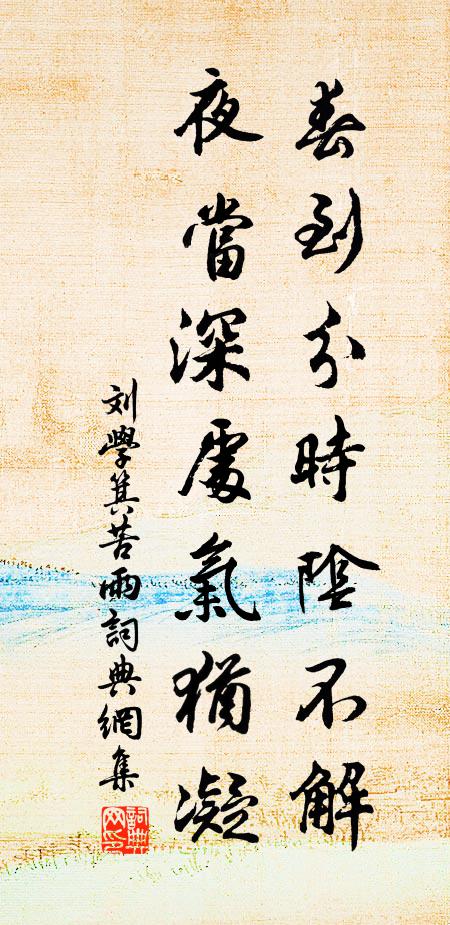 春到分時陰不解
夜當深處氣猶凝
刘學箕苦雨詞典網集
詞典網印